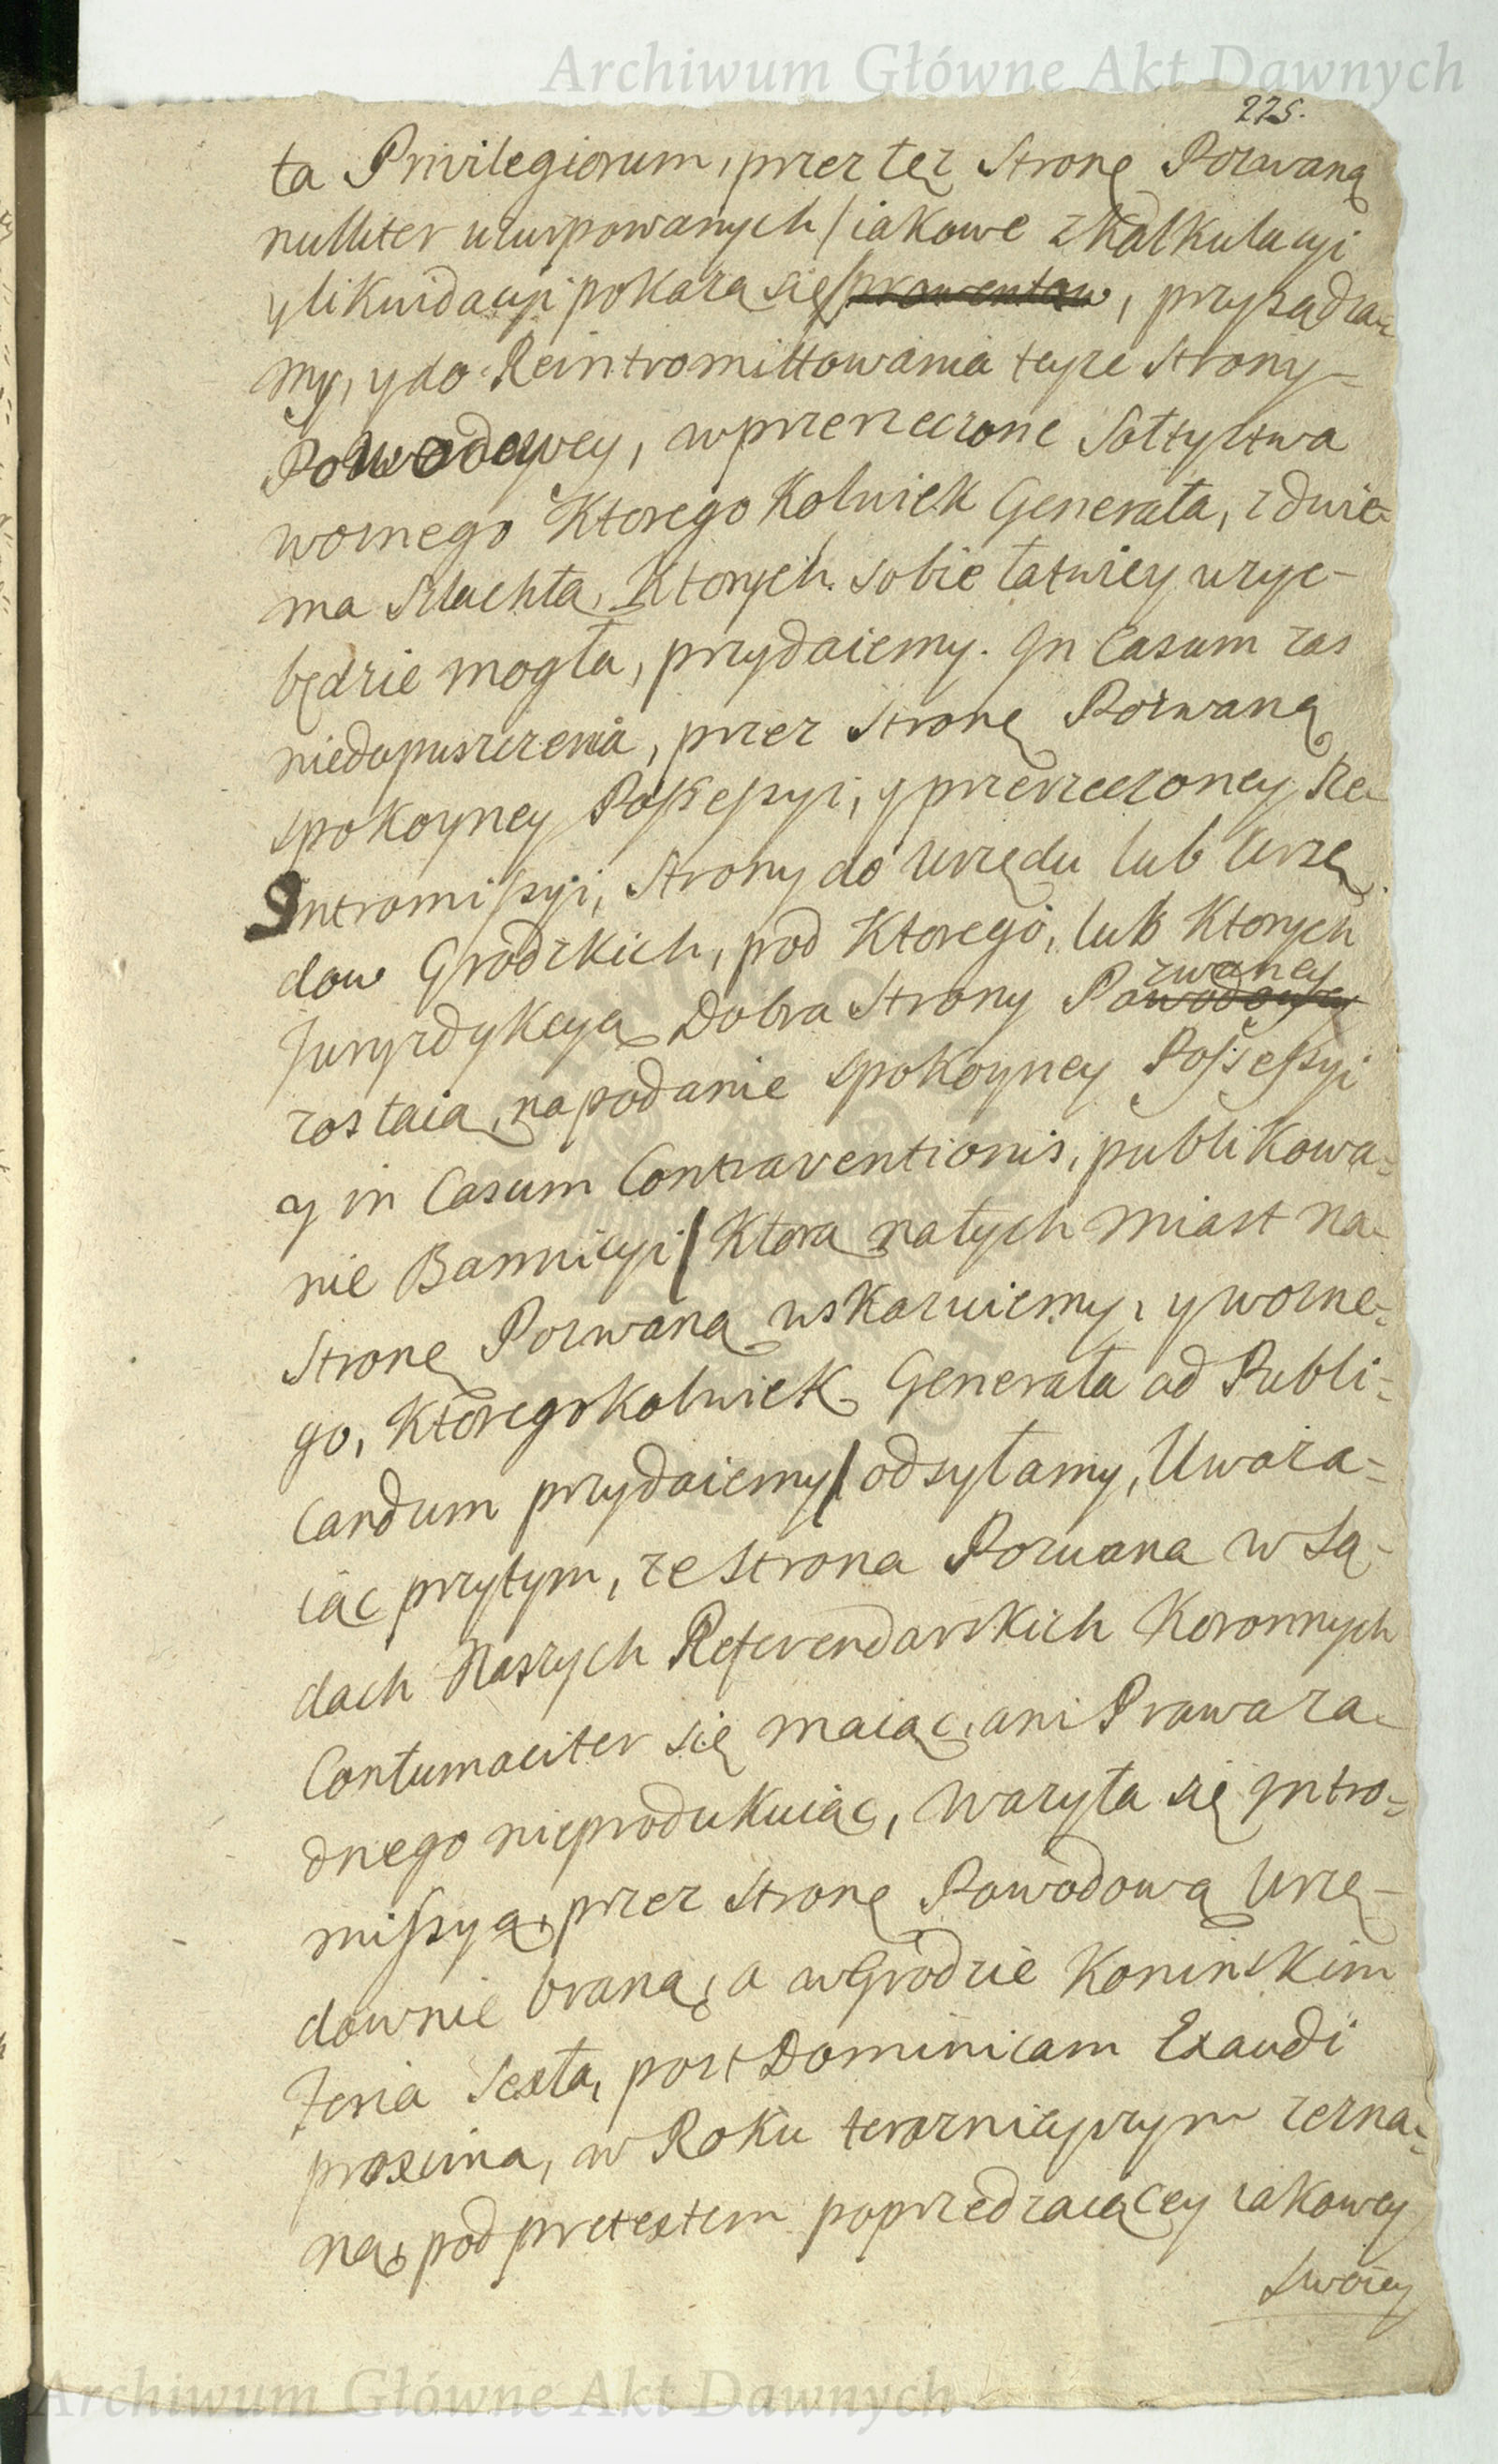 Archiwum Główne Akt Dawnych
225.
ta Privilegiorum, przez tęz Stronę Pozwaną
nulliter uzurpowanych / iakowe z kalkulacyi
y likwidacyi pokażą się / prowentow, przysądza-
my, y do Reintromittowania teyże Strony-
Powodowey, w przerzeczone Sołtystwa
woznego Ktorego Kolwiek Generała, z dwie-
ma Szlachtą, Ktorych sobie łatwiey uzyc-
będzie mogła, przydaiemy. In Casum zas
niedopuszczenia, przez Stronę Pozwaną
spokoyney Possessyi, y przerzeczoney Re-
Intromissyi, Strony do Urzędu lub Urzę
dow Grodzkich, pod Ktorego, lub Ktorych
zwaney
Juryzdykcyą Dobra Strony Powodowey
zostaią, na podanie spokoyney Possessyi
y in Casum Contraventionis, publikowa=
nie Bannicyi / Ktorą natych miast na-
Stronę Pozwaną wskazuiemy, y wozne=
go, Ktoregokolwiek Generała ad Publi=
candum przydaiemy / odsyłamy, Uwaza=
iąc przytym, ze Strona Pozwana w Są-
dach Naszych Referendarskich Koronnych
Contumaciter się maiąc, ani Prawa za-
dnego nieprodukuiąc, wazyła się Intro=
missyą, przez Stronę Powodową Urzę-
downie braną, a w Grodzie Konińskim
Feria Sexta, post Dominicam Exaudi
proxima, w Roku teraznieyszym zezna=
ną, pod pretextem poprzedzaiącey iakowey
swoiey
Archiwum Główne Akt Dawnych